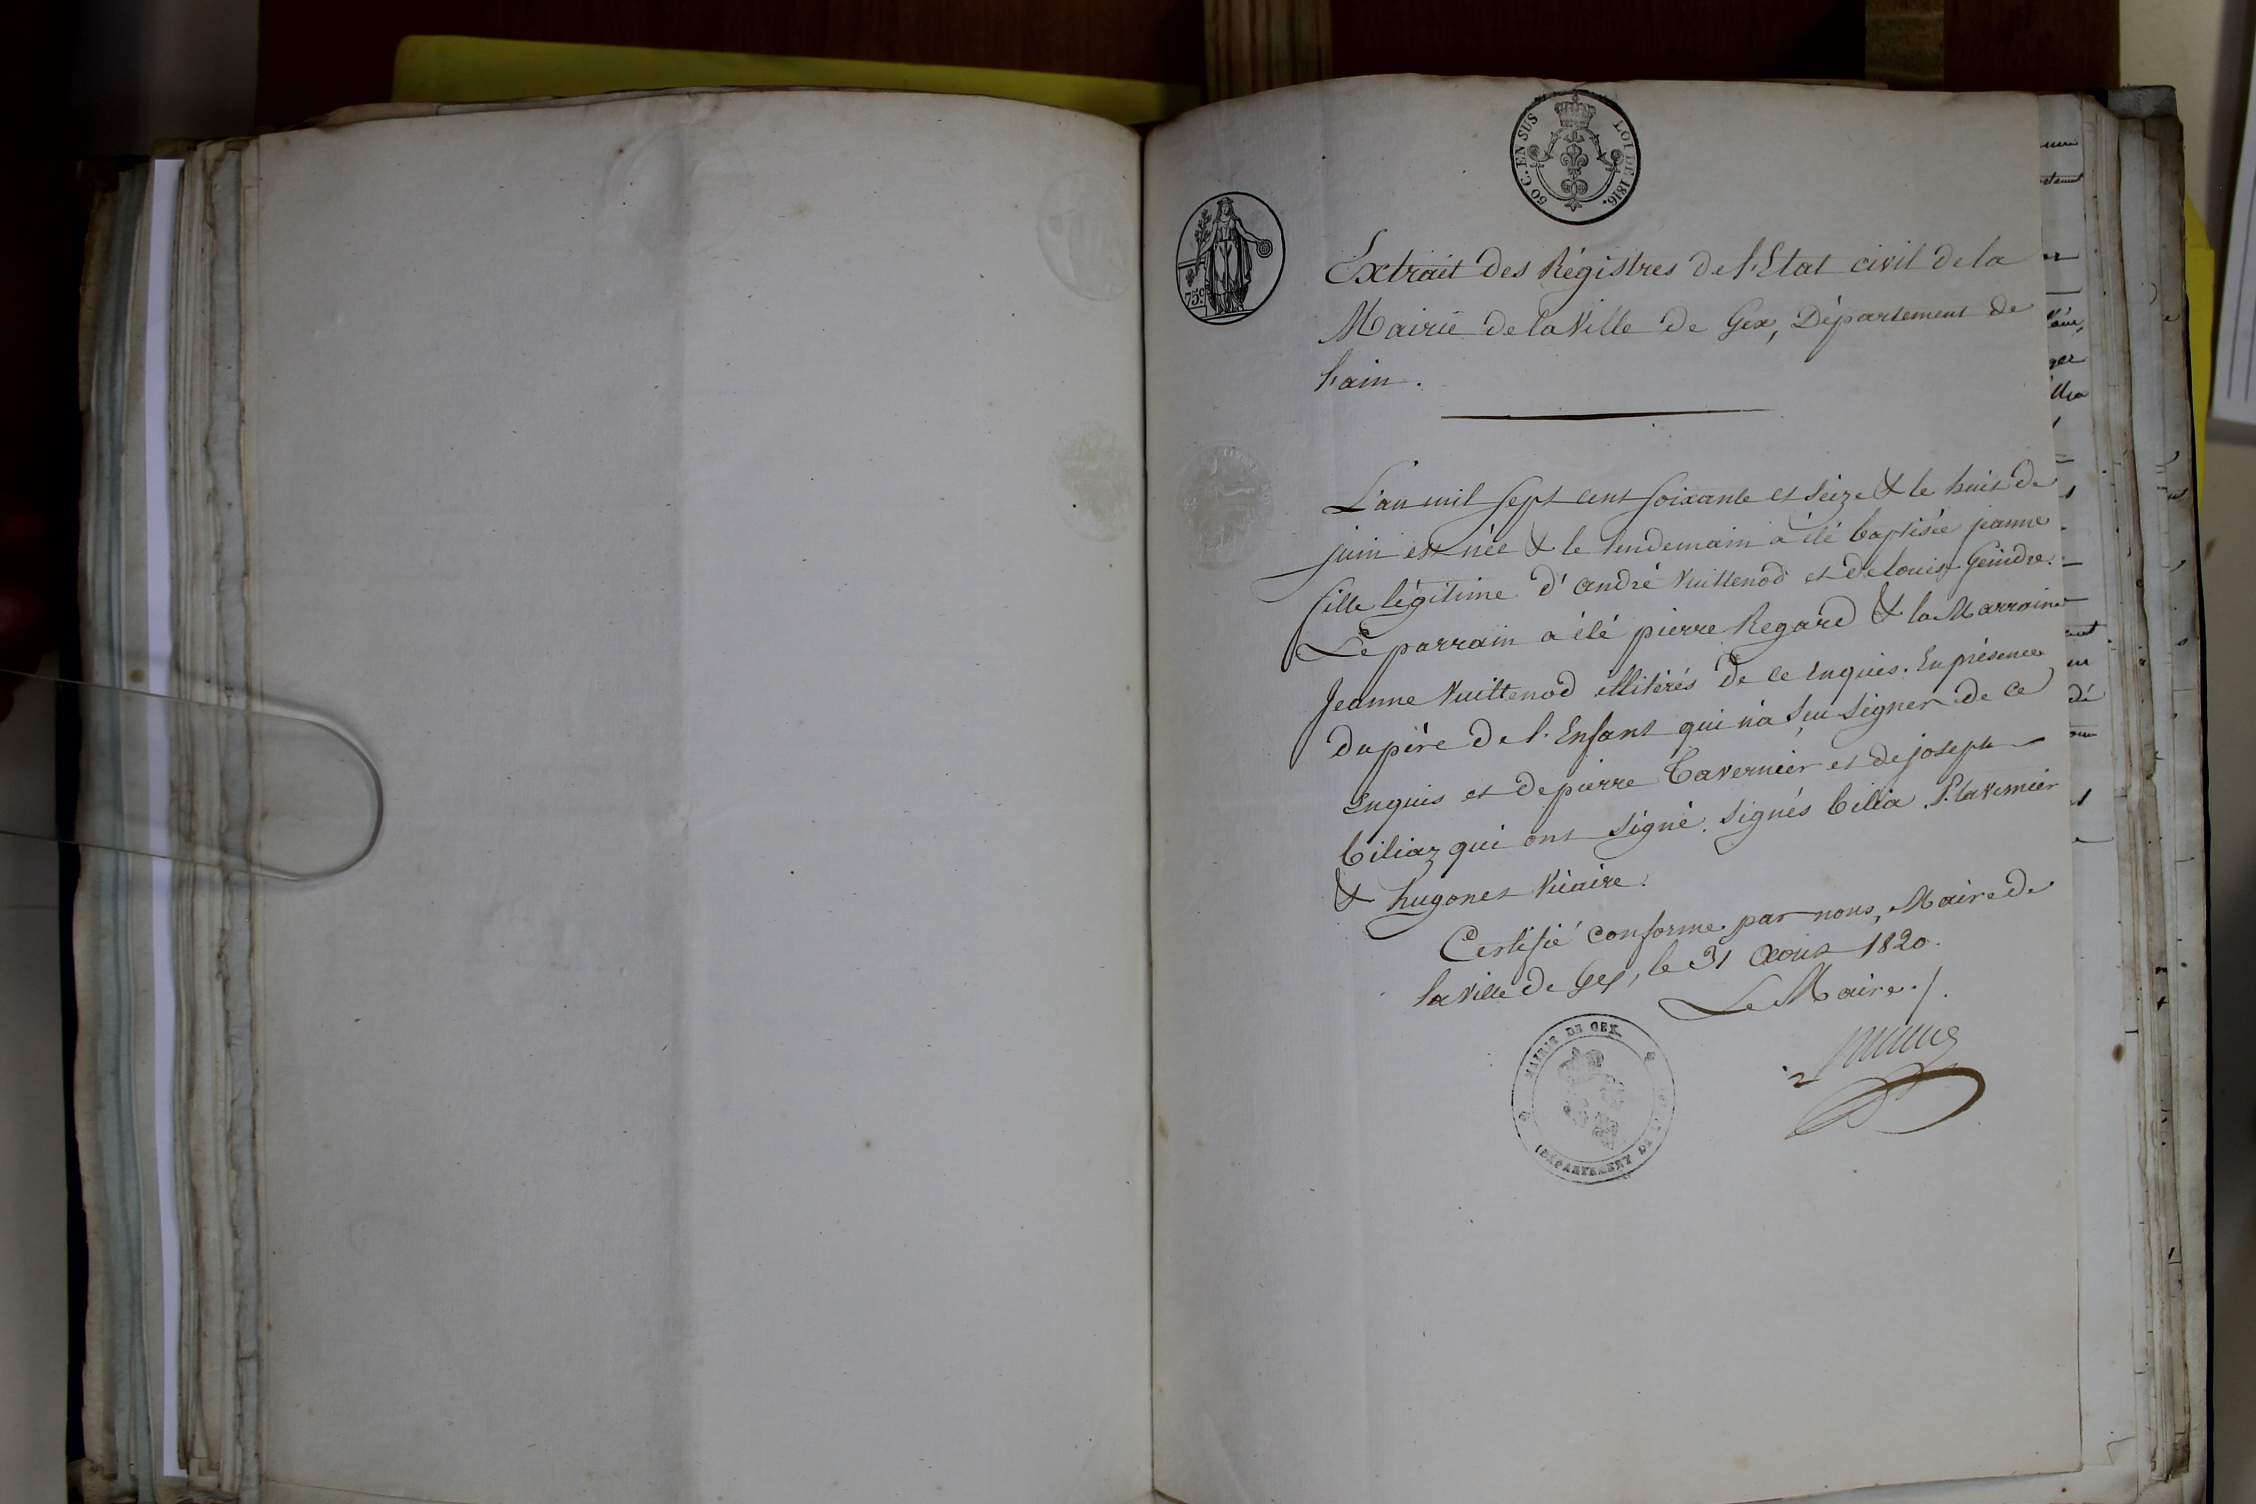 50 C. EN SUS LOI DE 1816.
75c
Extrait des Régistres de l'Etat civil de la
Mairie de la Ville de Gex, Département de
l'ain.
L'an mil sept cent soixante et seize & le huit de
juin est née & le lendemain a été baptisée jeanne
fille légitime d'andré Vuittenod et de louise Geindre.
Le parrain a été pierre Regard & la Marraine
Jeanne Vuittenod illitérés de ce enquis. En présence
du père de l'Enfant qui n'a sçu signer de ce
enquis et de pierre Tavernier et de joseph
biliaz qui ont signé. signés bilia. P. tavernier
& hugonet Vicaire.
Certifié conforme par nous, Maire de
la ville de Gex, le 31 Aout 1820.
Le Maire./.
MAIRIE DE GEX
DÉPARTEMENT DE